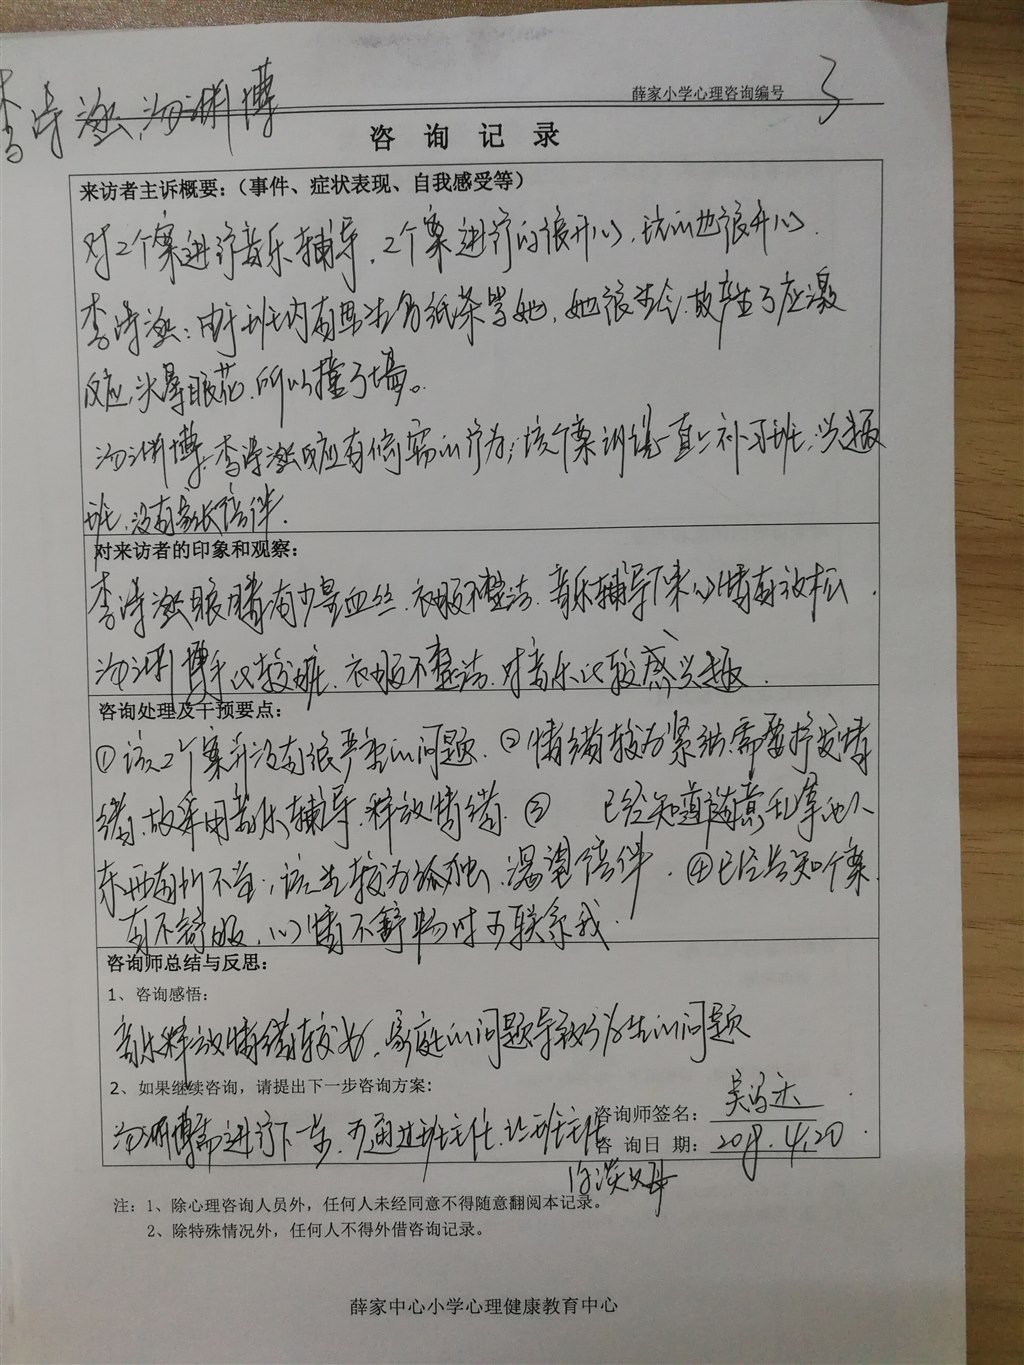 薛家小学心理咨询编号 3
李 博
咨 询 记 录
来访者主诉概要：（事件、症状表现、自我感受等）
对2个案进行音乐辅导，2个案进行的很开心，玩的也很开心.
李诗：由于班内有男生写纸条骂她，她很生气，故产生了应激
反应，头晕眼花，所以撞了墙。
博：李诗 反应有偷窃的行为；该个案训 一直上补习班，兴趣
班，没有家长陪伴.
对来访者的印象和观察：
李诗 眼睛有少量血丝，衣服不整洁，音乐辅导下来心情有放松.
博手比较脏，衣服不整洁，对音乐比较感兴趣.
咨询处理及干预要点：
①该2个案并没有很严重的问题. ②情绪较为紧张，需要抒发情
绪，故采用音乐辅导，释放情绪. ③ 已经知道随意乱拿他人
东西有所不当；该生较为孤独，渴望陪伴. ④已经告知个案，
有不舒服，心情不舒畅时可联系我.
咨询师总结与反思：
1、咨询感悟：
音乐释放情绪较好，家庭的问题导致学生的问题
2、如果继续咨询，请提出下一步咨询方案：
博需进行下一步，可通过班主任，让班主任
咨询师签名：吴
咨 询 日 期：2018. 4.20
注：1、除心理咨询人员外，任何人未经同意不得随意翻阅本记录。
2、除特殊情况外，任何人不得外借咨询记录。
薛家中心小学心理健康教育中心